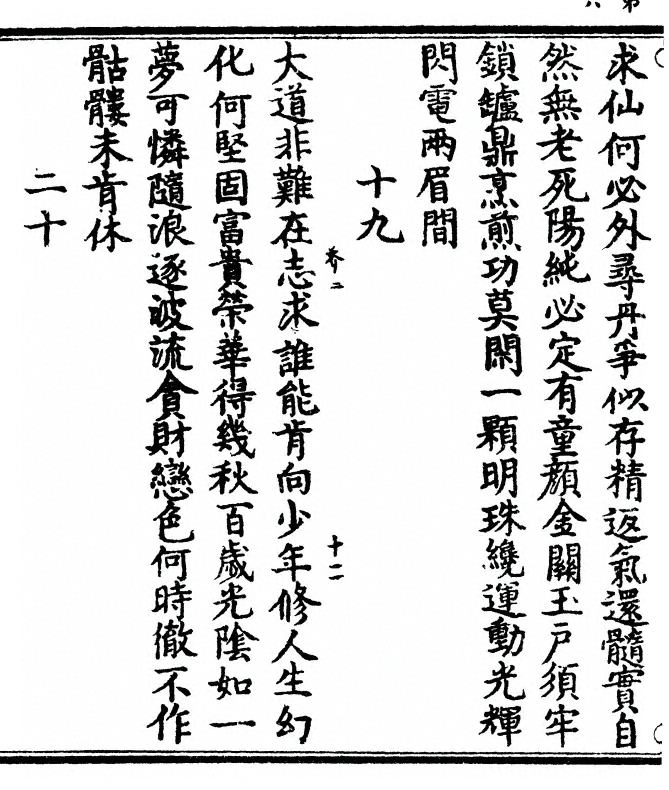 求仙何必外尋丹爭似存精返氣還髓實自
然無老死陽純必定有童顏金關玉戶須牢
鎖鑪鼎烹煎功莫閑一顆明珠繞運動光輝
閃電兩眉間
十九
卷二
十二
大道非難在志求誰能肯向少年修人生幻
化何堅固富貴榮華得幾秋百歲光陰如一
夢可憐隨浪逐波流貪財戀色何時徹不作
骷髏未肯休
二十